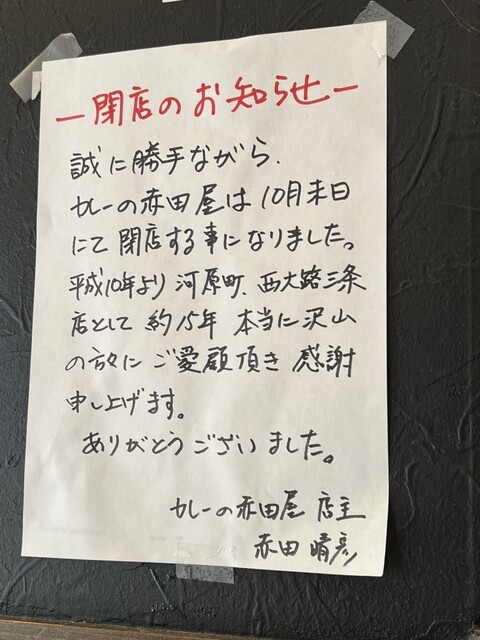 ー閉店のお知らせー
誠に勝手ながら、
カレーの赤田屋は10月末日
にて閉店する事になりました。
平成10年より河原町、西大路三条
店として約15年本当に沢山
の方々にご愛顧頂き感謝
申し上げます。
ありがとうございました。
カレーの赤田屋 店主
赤田 晴彦